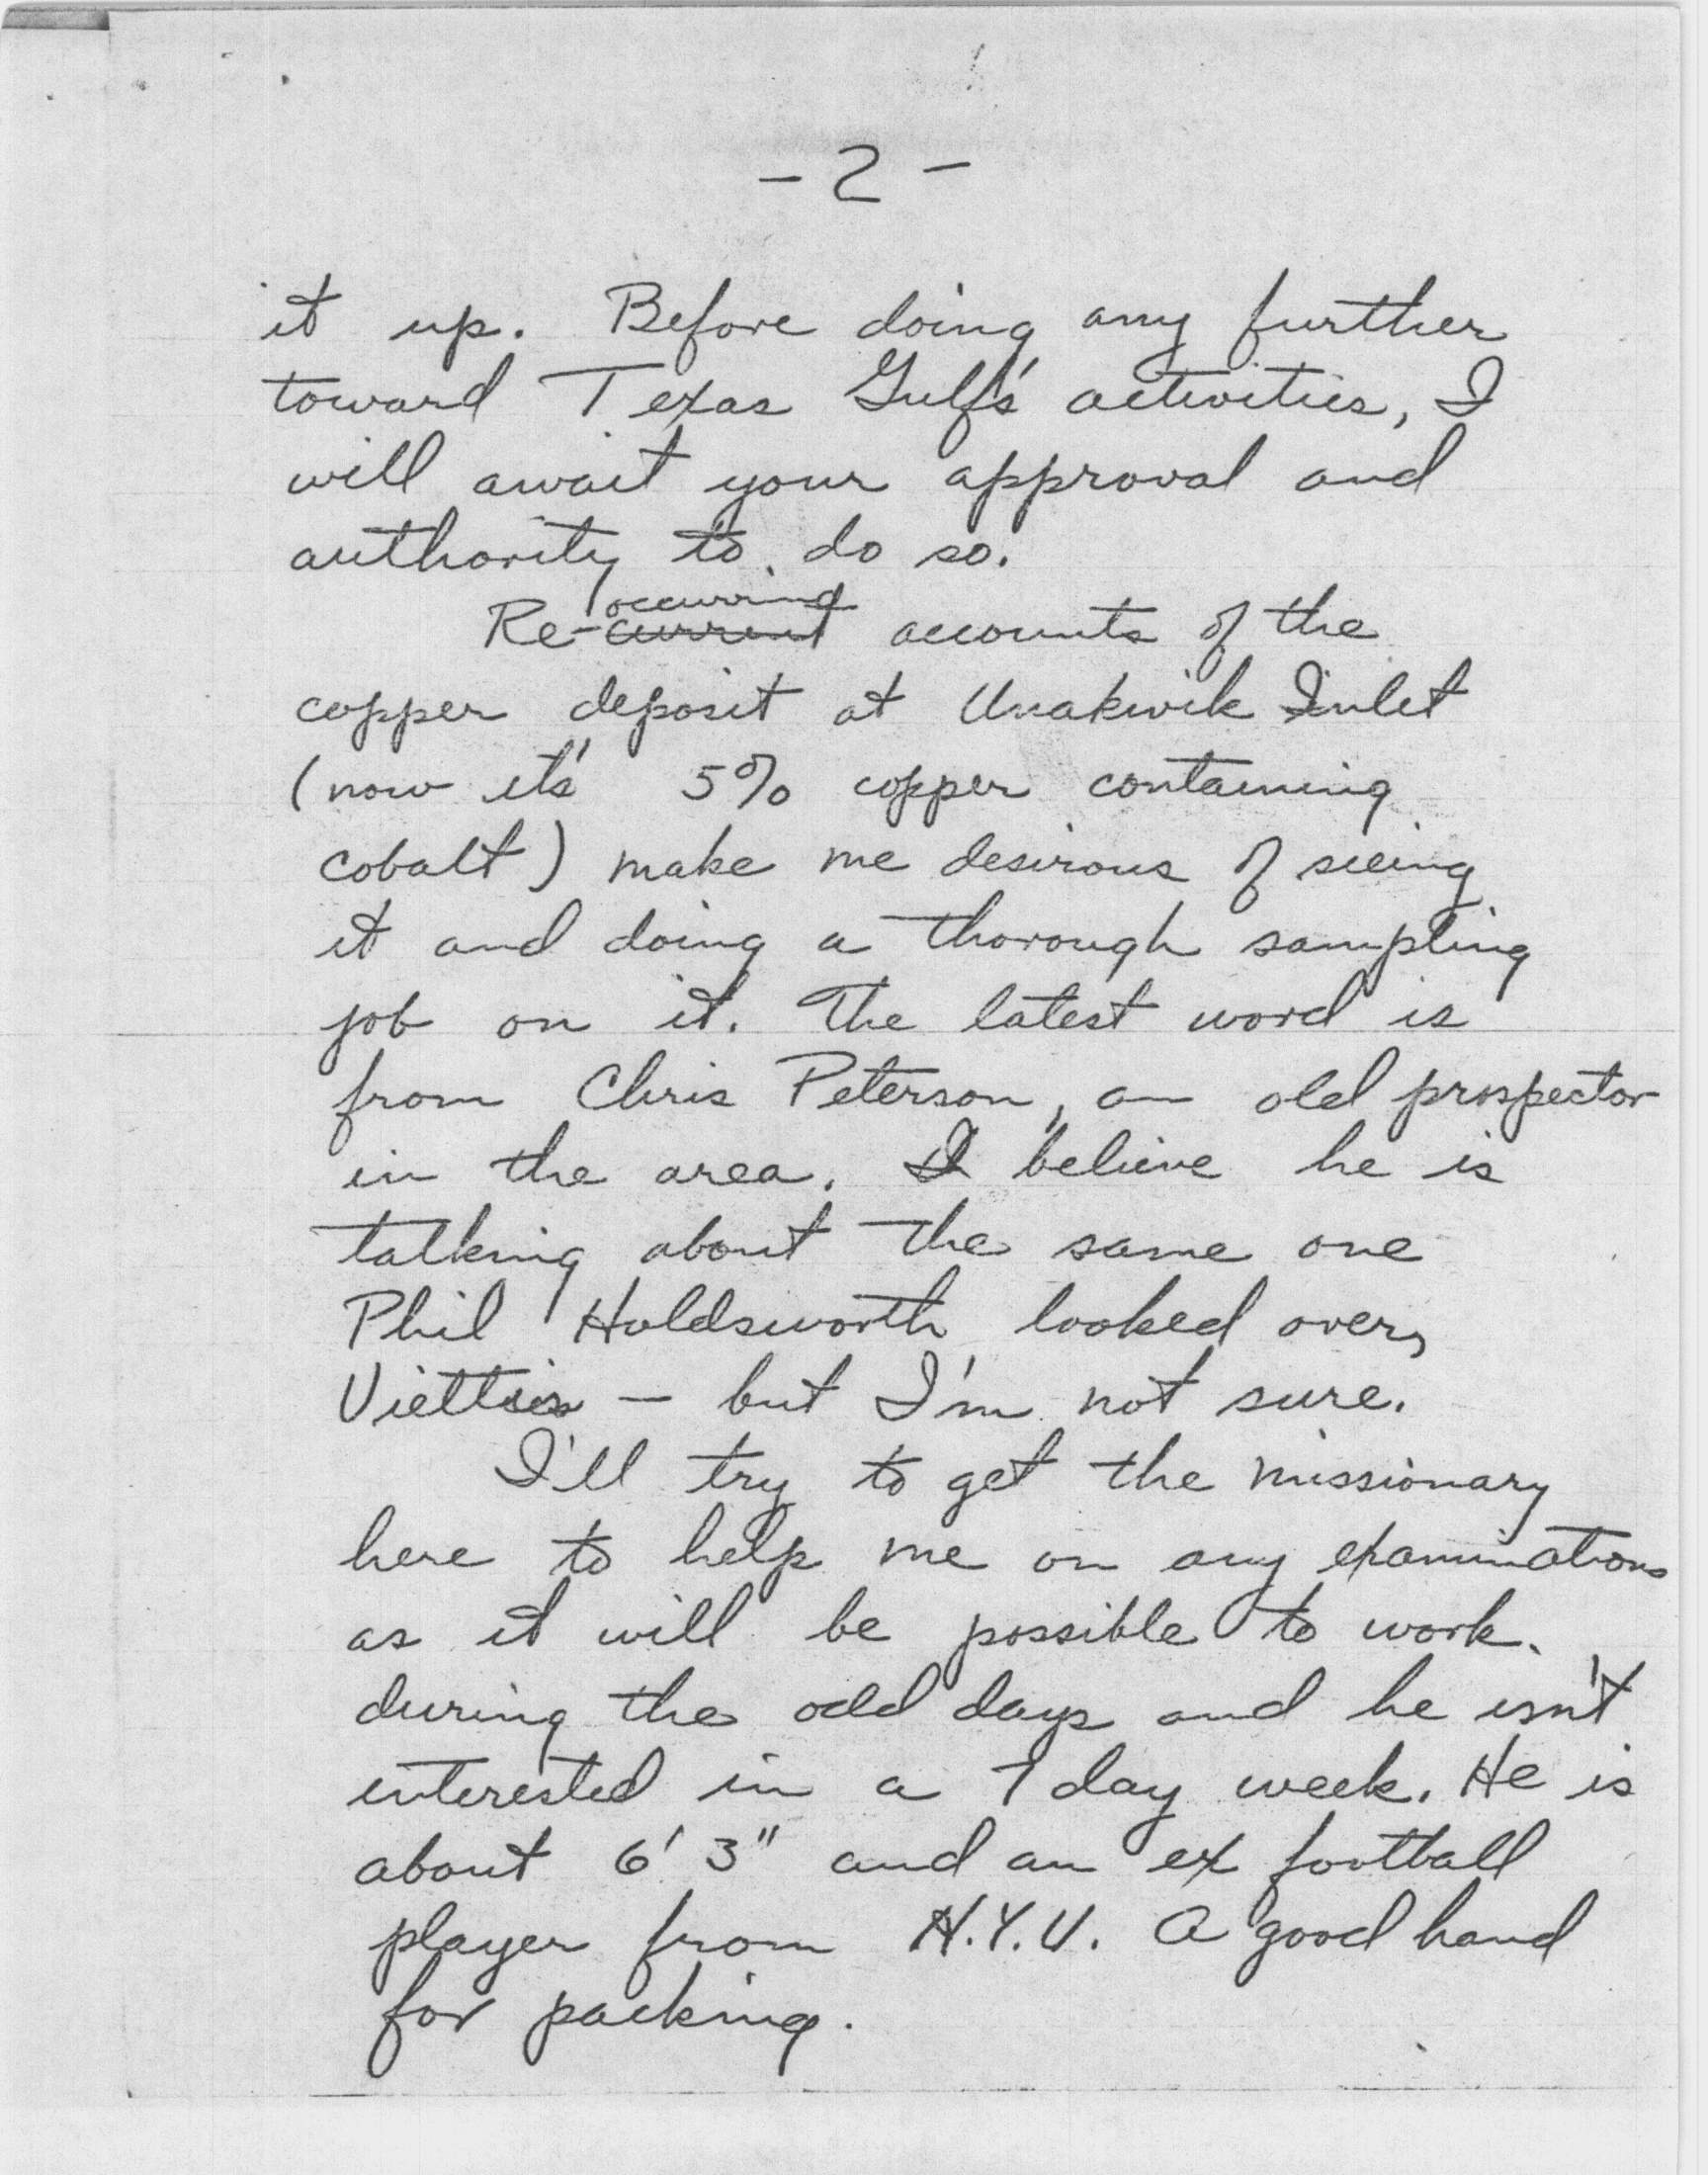 - 2 -
it up. Before doing any further
toward Texas Gulf's activities, I
will await your approval and
authority to do so.
occurring
Re-current accounts of the
copper deposit at Unakwik Inlet
(now it's 5% copper containing
cobalt) make me desirous of seeing
it and doing a thorough sampling
job on it. The latest word is
from Chris Peterson, an old prospector
in the area. I believe he is
talking about the same one
Phil Holdsworth looked over,
— but I'm not sure.
I'll try to get the missionary
here to help me on any examinations
as it will be possible to work
during the odd days and he isn't
interested in a 7 day week. He is
about 6' 3" and an ex football
player from N.Y.U. A good hand
for packing.